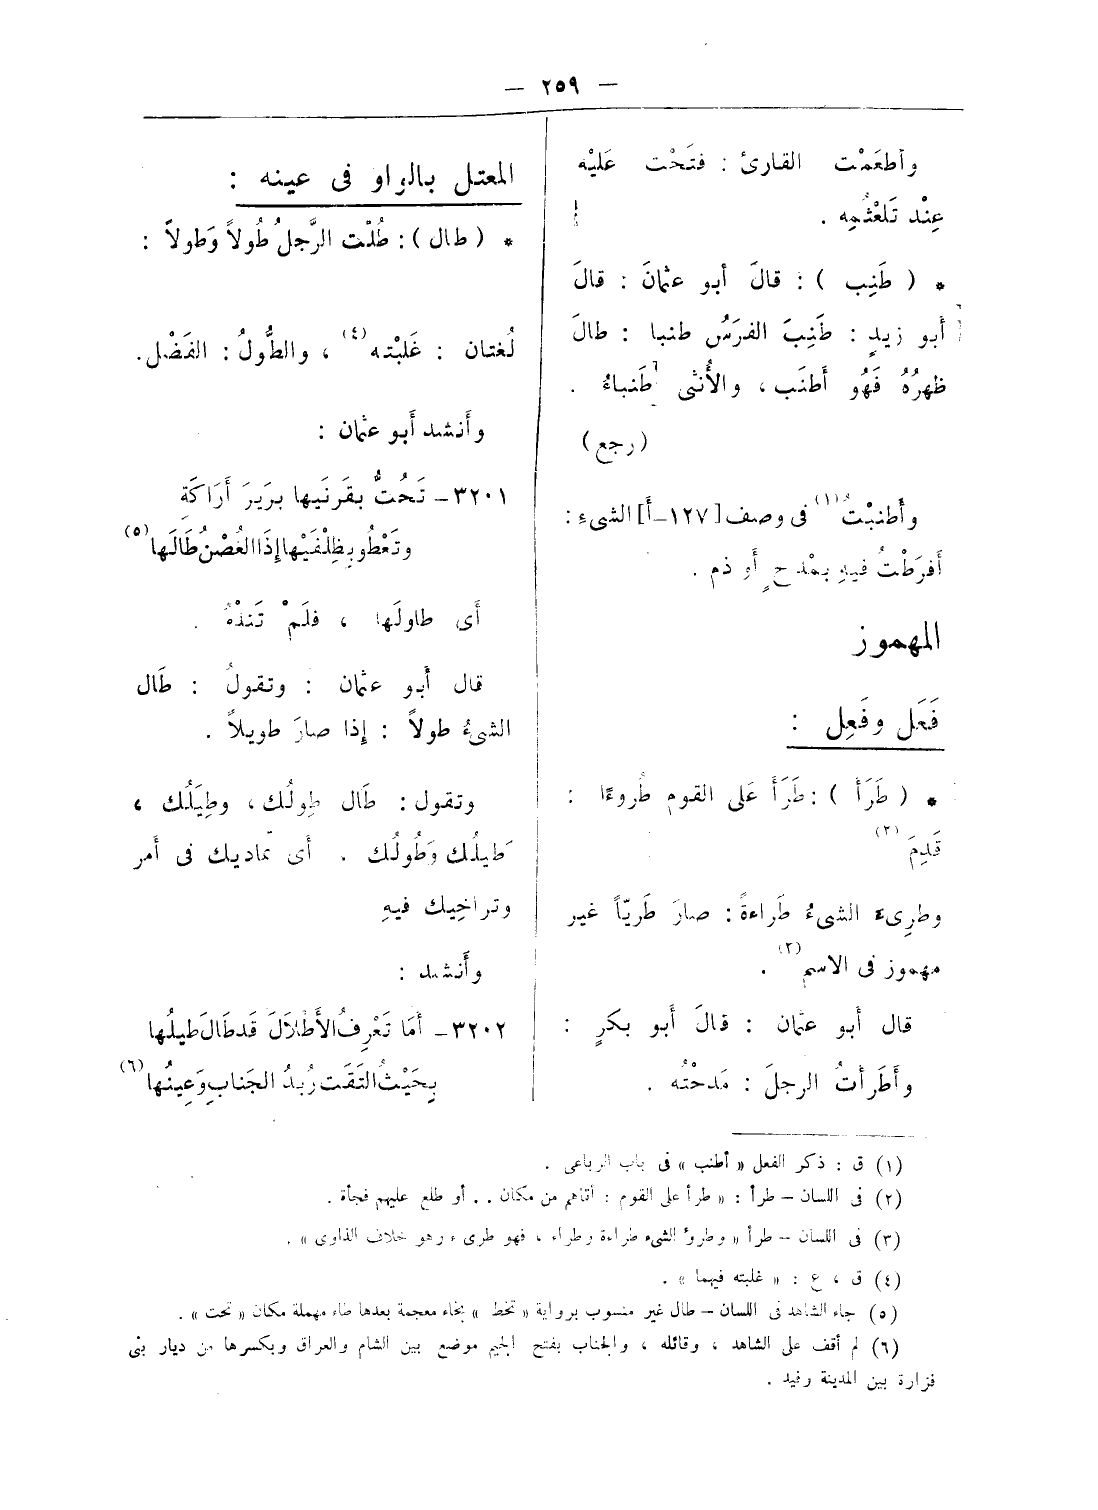 — ٢٥٩ —
وأطعَمْت القارئ : فتَحْت عَليْه
عِنْد تَلعْثُمِه .
* ( طَنِب ) : قالَ أبو عثمانَ : قالَ
أبو زيدٍ : طَنِبَ الفرَسُ طنبا : طالَ
ظهرُهُ فَهُو أطنَب ، والأُنثى طَنباءُ .
( رجع )
وأطنبْتُ(١) فى وصف [ ١٢٧ ـ أ ] الشىءِ :
أفرَطْتُ فيهِ بمْدحٍ أو ذم .
المهموز
فَعَل وفَعِل :
* ( طَرَأ ) : طَرَأ عَلى القوم طُروءًا :
قَدِمَ (٢)
وطرِىء الشىءُ طَراءةً : صارَ طَريّاً غير
مهموز فى الاسم(٢) .
قال أبو عثمان : قالَ أبو بكرٍ :
وأطَرأتُ الرجلَ : مَدحْتُه .
المعتل بالواو فى عينه :
* ( طال ) : طُلْت الرَّجلُ طُولاً وَطولاً :
لُغتان : غَلبْته(٤) ، والطُّولُ : الفَضْل .
وأنشد أبو عثمان :
٣٢٠١ ـ تَحُتُّ بقَرنَيها برَيرَ أَرَاكَةِ
وتَعْطو بِظِلْفَيْها إذَا الغُصْنُ طَالَها(٥)
أَى طاولَها ، فلَمْ تَنَلهُ .
قال أَبو عثمان : وتقولُ : طَال
الشىءُ طولاً : إذا صارَ طويلاً .
وتقول : طَال طِولُك ، وطِيَلُك ،
وَطيلُك وَطُولُك . أى تماديك فى أمر
وتراخِيك فيهِ
وأَنشد :
٣٢٠٢ ـ أمَا تَعْرِفُ الأَطْلاَلَ قَدطَالَ طيلُها
بِحَيْثُ التَقَت رُبدُ الجَنابِ وَعِينُها(٦)
(١) ق : ذكر الفعل « أطنب » فى باب الرباعى .
(٢) فى اللسان – طرأ : « طرأ على القوم : أتاهم من مكان . . أو طلع عليهم فجأة .
(٣) فى اللسان – طرأ « وطرؤ الشىء طراءة وطراء ، فهو طرىء وهو خلاف الذاوى » .
(٤) ق ، ع : « غلبته فيهما » .
(٥) جاء الشاهد فى اللسان – طال غير منسوب برواية « تخط » بخاء معجمة بعدها طاء مهملة مكان « تحت » .
(٦) لم أقف على الشاهد ، وقائله ، والجناب بفتح الجيم موضع بين الشام والعراق وبكسرها من ديار بنى
فزارة بين المدينة وفيد .